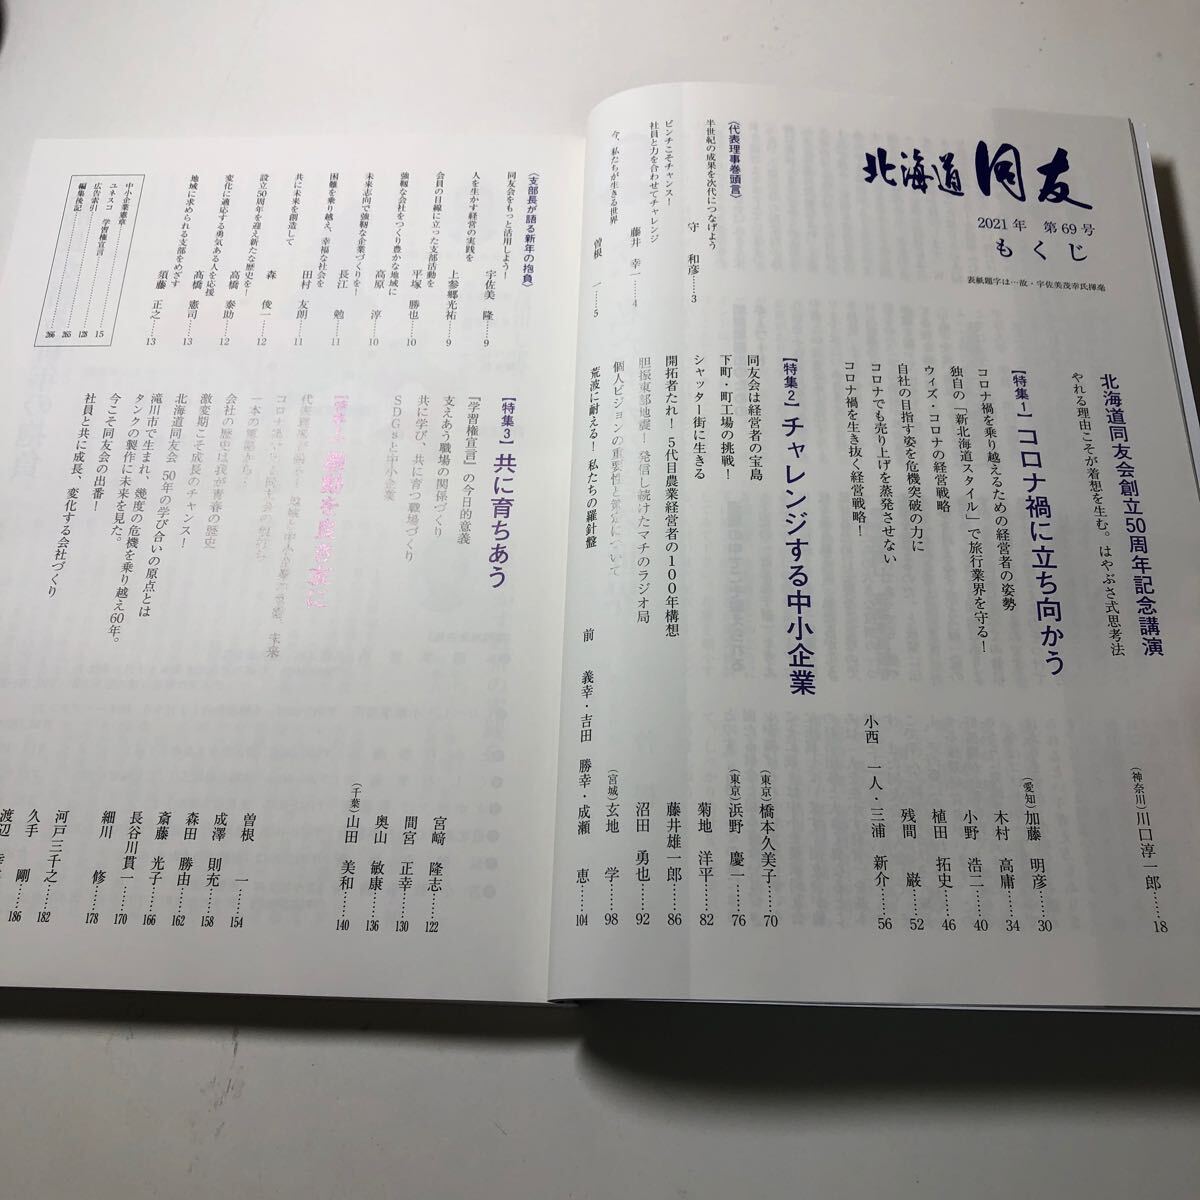 北海道同友
2021年 第69号
もくじ
表紙題字は…故・宇佐美茂幸氏揮毫
〈代表理事巻頭言〉
半世紀の成果を次代につなげよう
守 和彦……3
ピンチこそチャンス!
社員と力を合わせてチャレンジ
藤井 幸一……4
今、私たちが生きる世界
曽根 一……5
北海道同友会創立50周年記念講演
やれる理由こそが着想を生む。はやぶさ式思考法
(神奈川)川口淳一郎……18
【特集1】コロナ禍に立ち向かう
コロナ禍を乗り越えるための経営者の姿勢
(愛知)加藤 明彦……30
独自の「新北海道スタイル」で旅行業界を守る!
木村 高庸……34
ウィズ・コロナの経営戦略
小野 浩二……40
自社の目指す姿を危機突破の力に
植田 拓史……46
コロナでも売り上げを蒸発させない
残間 巌……52
コロナ禍を生き抜く経営戦略!
小西 一人・三浦 新介……56
【特集2】チャレンジする中小企業
同友会は経営者の宝島
(東京)橋本久美子……70
下町・町工場の挑戦!
(東京)浜野 慶一……76
シャッター街に生きる
菊地 洋平……82
開拓者たれ!5代目農業経営者の100年構想
藤井雄一郎……86
胆振東部地震!発信し続けたマチのラジオ局
沼田 勇也……92
個人ビジョンの重要性と策定について
(宮城)玄地 学……98
荒波に耐える!私たちの羅針盤
前 義幸・吉田 勝幸・成瀬 恵……104
〈支部長が語る新年の抱負〉
同友会をもっと活用しよう!
宇佐美 隆……9
人を生かす経営の実践を
上参郷光祐……9
会員の目線に立った支部活動を
平塚 勝也……10
強靱な会社をつくり豊かな地域に
高原 淳……10
未来志向で強靭な企業づくりを!
長江 勉……11
困難を乗り越え、幸福な社会を
田村 友朗……11
共に未来を創造して
森 俊一……12
設立50周年を迎え新たな歴史を!
高橋 泰助……12
変化に適応する勇気ある人を応援
高橋 憲司……13
地域に求められる支部をめざす
須藤 正之……13
中小企業憲章
ユネスコ 学習権宣言……15
広告索引……265
編集後記……266
【特集3】共に育ちあう
『学習権宣言』の今日的意義
宮﨑 隆志……122
支えあう職場の関係づくり
間宮 正幸……130
共に学び、共に育つ職場づくり
奥山 敏康……136
SDGsと中小企業
(千葉)山田 美和……140
曽根 一……154
成澤 則充……158
会社の歴史は我が青春の歴史
森田 勝由……162
激変期こそ成長のチャンス!
斎藤 光子……166
北海道同友会 50年の学び合いの原点とは
長谷川貫一……170
滝川市で生まれ、幾度の危機を乗り越え60年。
タンクの製作に未来を見た。
細川 修……178
今こそ同友会の出番!
河戸三千之……182
社員と共に成長、変化する会社づくり
久手 剛……186
渡辺